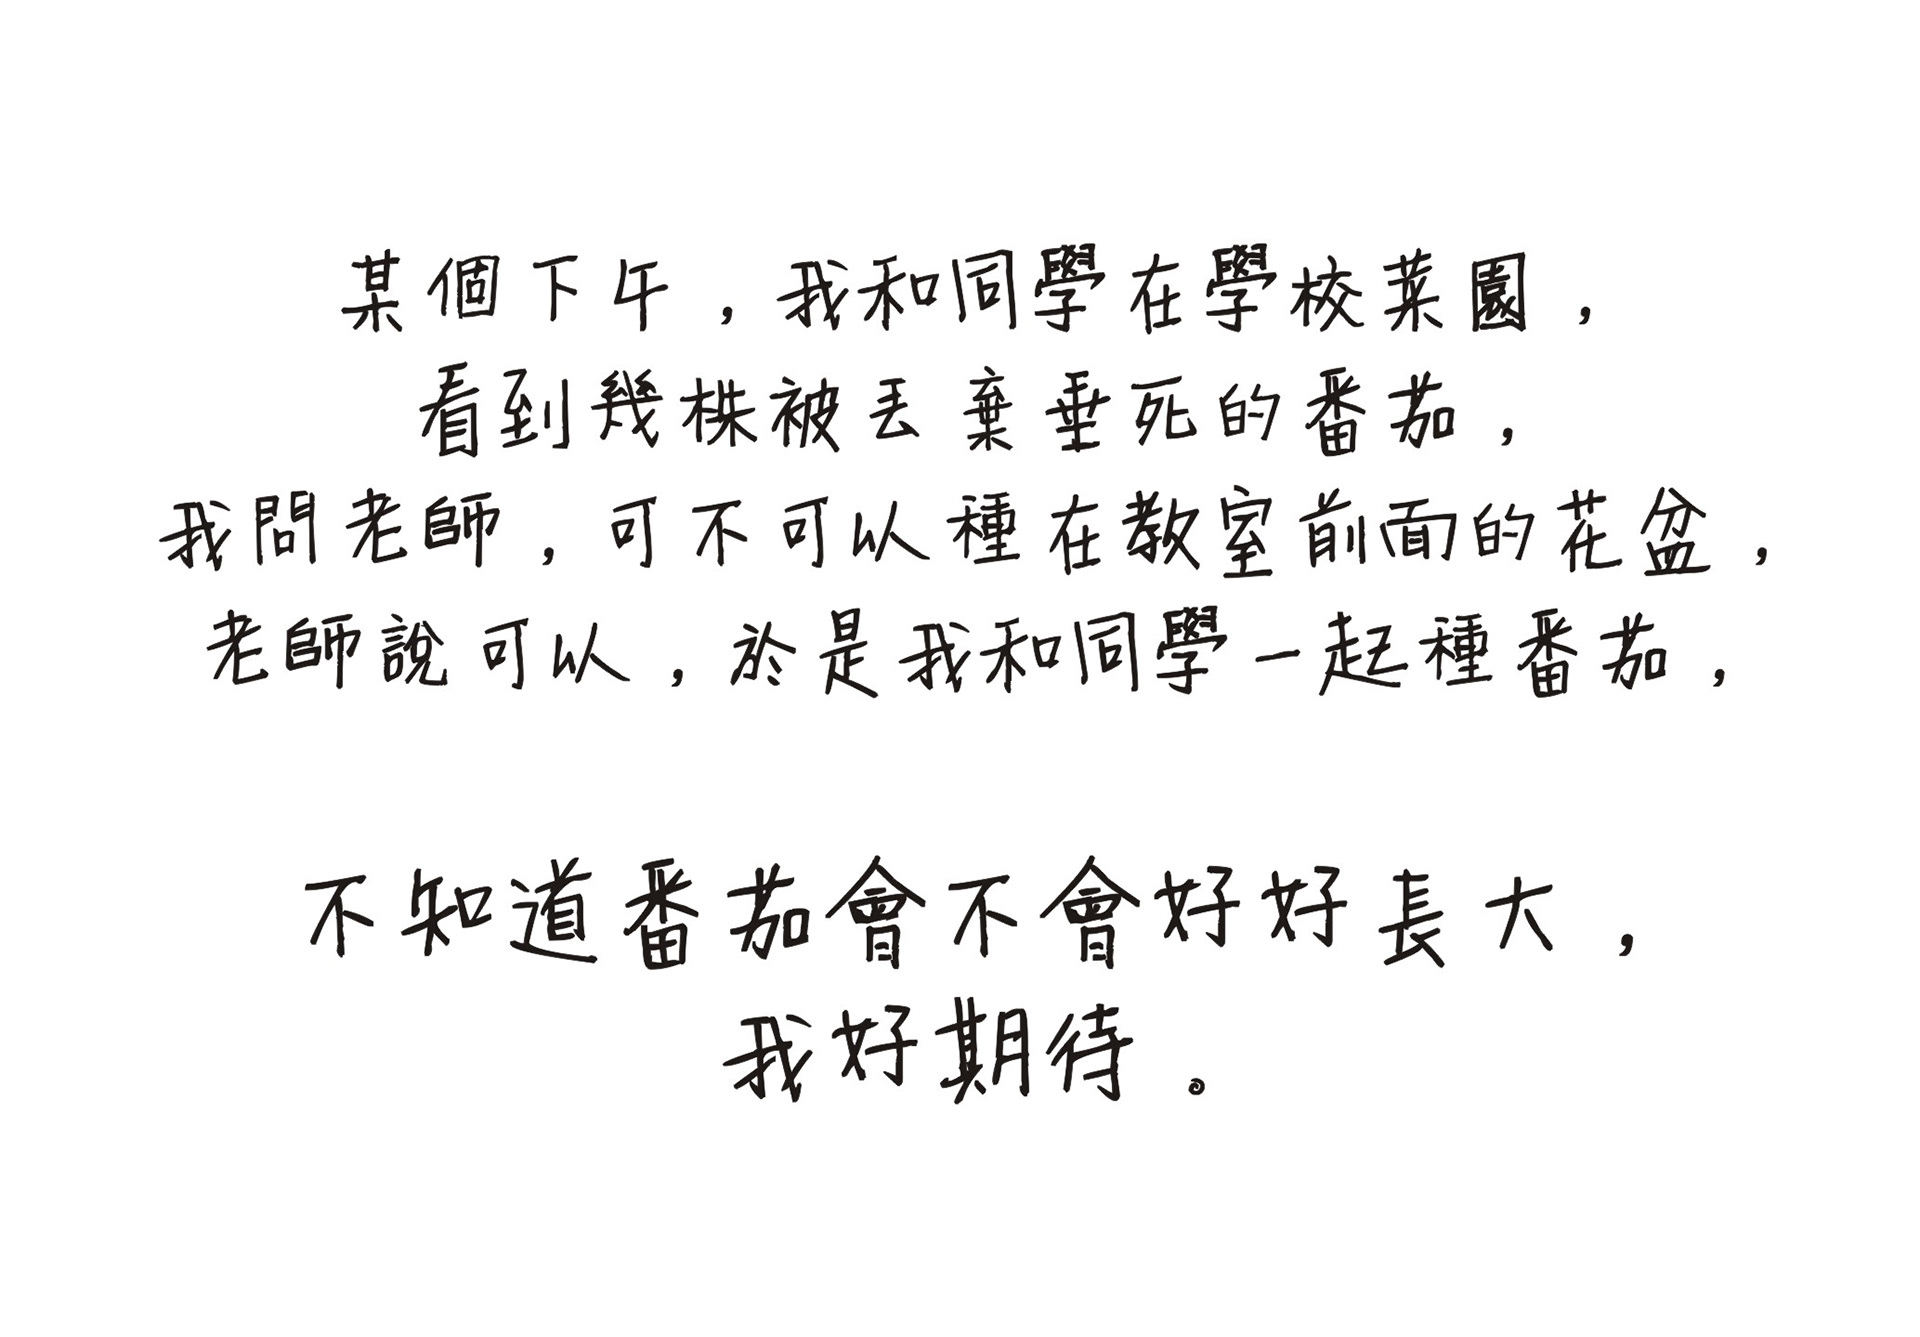 某個下午，我和同學在學校菜園，
看到幾株被丟棄垂死的番茄，
我問老師，可不可以種在教室前面的花盆，
老師說可以，於是我和同學一起種番茄，
不知道番茄會不會好好長大，
我好期待。